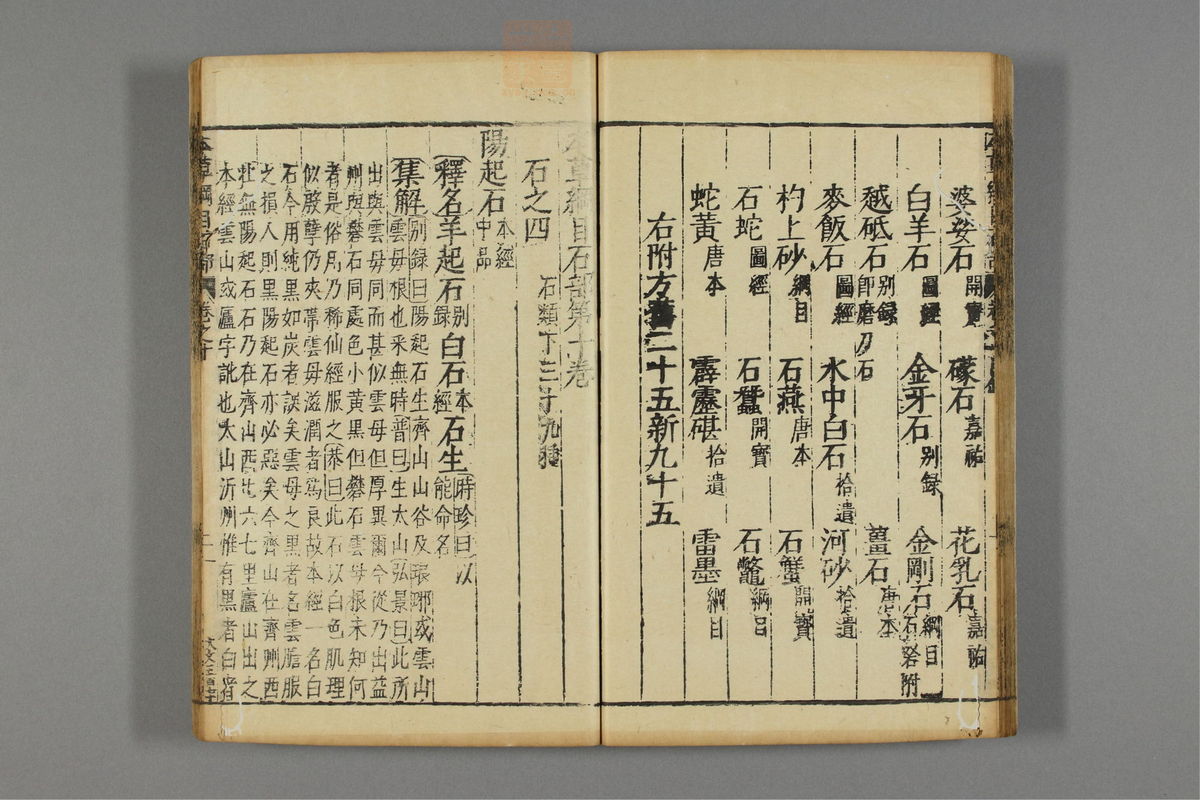 婆娑石開寶 礞石嘉祐 花乳石嘉祐
白羊石圖經 金牙石别録 金剛石綱目石砮附
越砥石别録即磨刀石 薑石唐本
麥飯石圖經 水中白石拾遺 河砂拾遺
杓上砂綱目 石燕唐本 石蟹開寶
石蛇圖經 石蠶開寶 石鼈綱目
蛇黃唐本 霹靂碪拾遺 雷墨綱目
右附方舊二十五新九十五
本草綱目石部第十卷
石之四 石類下三十九種
陽起石本經中品
釋名羊起石别録白石本經石生時珍曰以能命名
集解别録曰陽起石生齊山山谷及琅琊或雲山
雲母根也采無時普曰生太山弘景曰此所
出與雲母同而甚似雲母但厚異爾今從乃出益
州與礬石同處色小黃黑但礬石雲母根未知何
者是俗用乃稀仙經服之恭曰此石以白色肌理
似殷孽仍夾帶雲母滋潤者爲良故本經一名白
石今用純黑如炭者誤矣雲母之黑者名雲膽服
之損人則黑陽起石亦必惡矣今齊山在齊州西
北無陽起石石乃在齊山西北六七里廬山出之
本經雲山或廬字訛也太山沂州惟有黑者白者